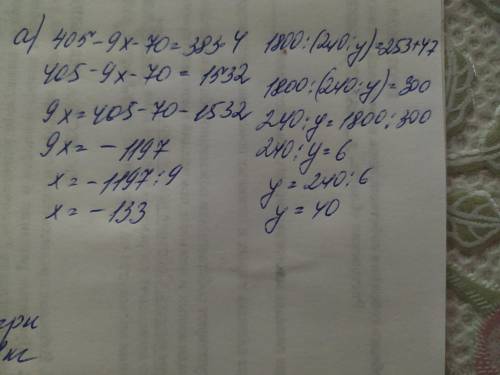 а) 405-9x-70=383·4
405-9x-70=1532
9x=405-70-1532
9x=-1197
x=-1197:9
x=-133
1800:(240:y)=253+47
1800:(240:y)=300
240:y=1800:300
240:y=6
y=240:6
y=40
кг